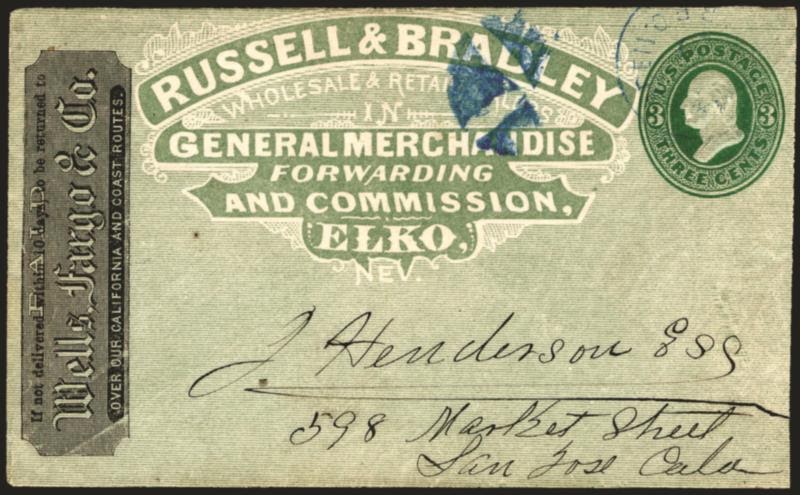 If not delivered within 10 days, to be returned to
PAID
Wells, Fargo & Co.
OVER OUR CALIFORNIA AND COAST ROUTES.
RUSSELL & BRADLEY
WHOLESALE & RETAIL
IN
GENERAL MERCHANDISE
FORWARDING
AND COMMISSION,
ELKO,
NEV.
U.S. POSTAGE
3 3
THREE CENTS
J Henderson Esq
598 Market Street
San Jose Cala